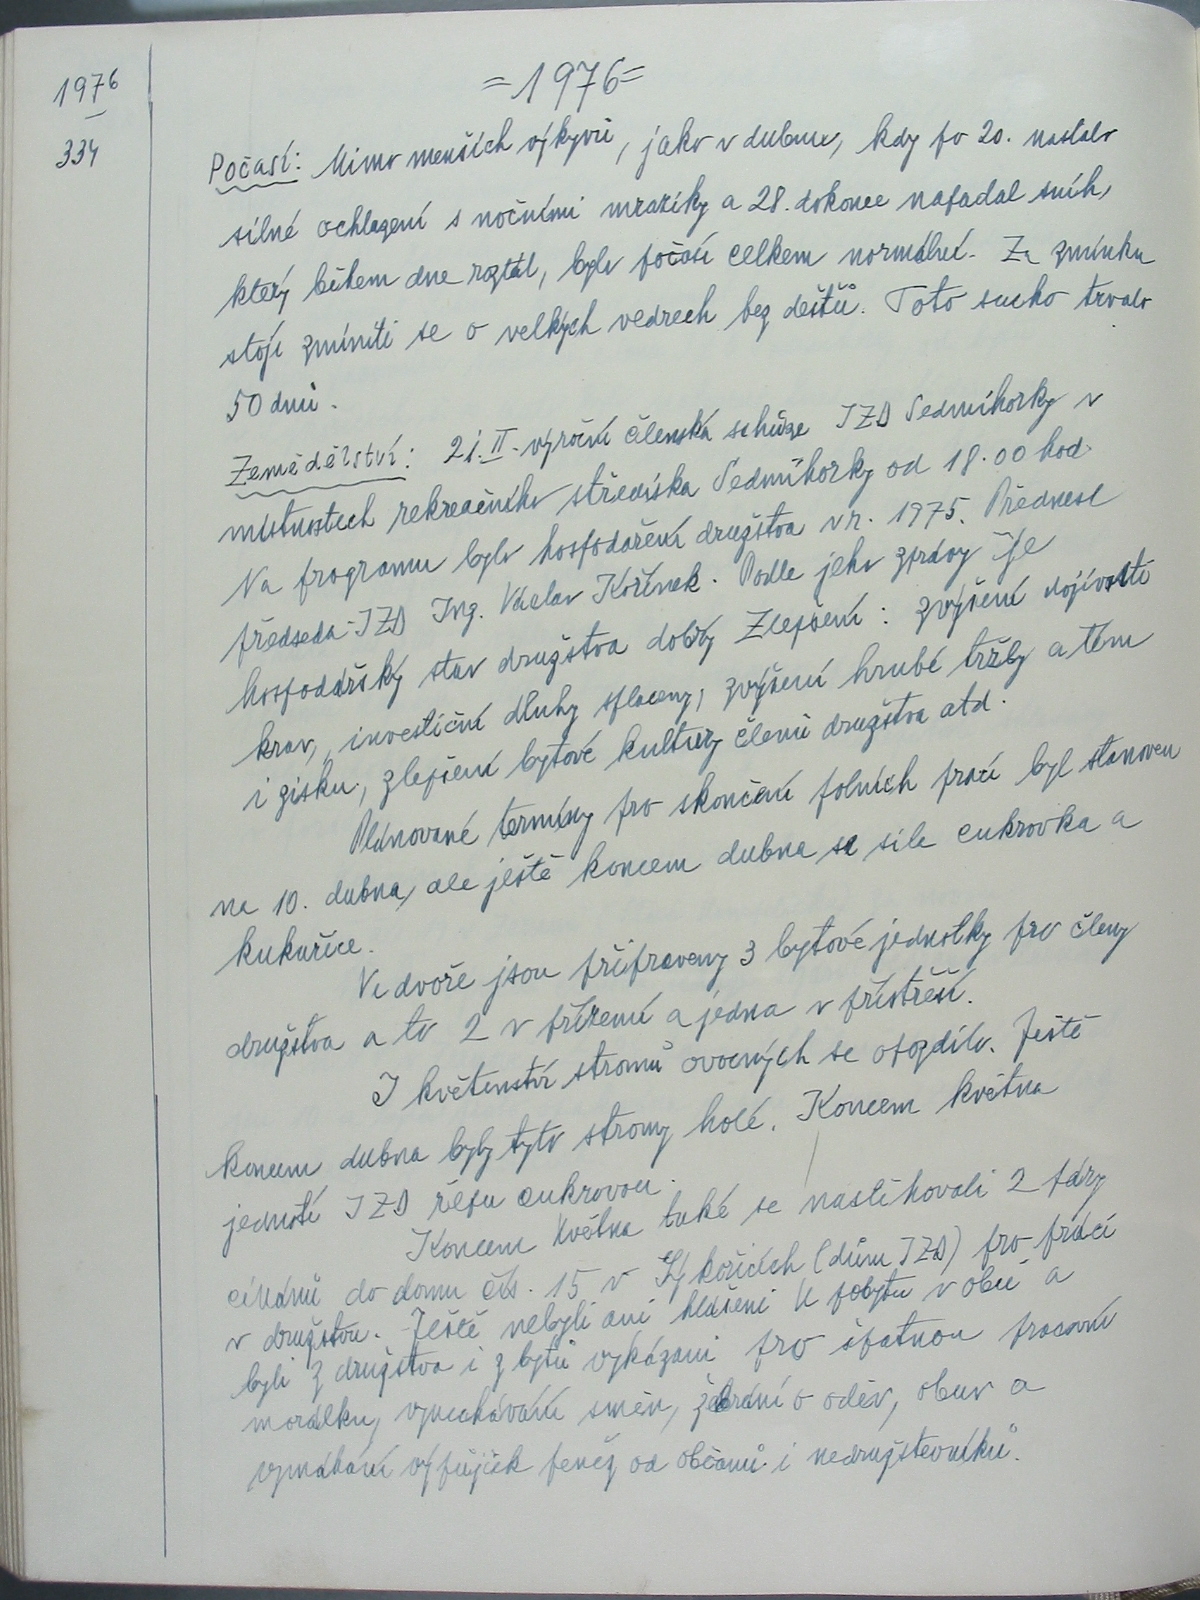 1976
334
=1976=
Počasí: Mimo menších výkyvů, jako v dubnu, kdy po 20. nastalo
silné ochlazení s nočními mrazíky a 28. dokonce napadal sníh,
který během dne roztál, bylo počasí celkem normální. Za zmínku
stojí zmíniti se o velkých vedrech bez deštů. Toto sucho trvalo
50 dnů.
Zemědělství: 21. II. výroční členská schůze JZD Sedmihorky v
místnostech rekreačního střediska Sedmihorky od 18.00 hod.
Na programu bylo hospodaření družstva v r. 1975. Přednesl
předseda JZD Ing. Václav Kořínek. Podle jeho zprávy je
hospodářský stav družstva dobrý Zlepšení: zvýšení dojivosti
krav, investiční dluhy splaceny, zvýšení hrubé tržby a tím
i zisku, zlepšení bytové kultury členů družstva atd.
Plánované termíny pro skončení polních prací byl stanoven
na 10. dubna, ale ještě koncem dubna se sile cukrovka a
kukuřice.
Ve dvoře jsou připraveny 3 bytové jednotky pro členy
družstva a to 2 v přízemí a jedna v přístřeší.
I květenství stromů ovocných se opozdilo. Ještě
koncem dubna byly tyto stromy holé. Koncem května
jednotí JZD řepu cukrovou.
Koncem května také se nastěhovali 2 páry
cikánů do domu čís. 15 v Sýkořicích (dům JZD) pro práci
v družstvu. Ještě nebyli ani hlášeni k pobytu v obci a
byli z družstva i z bytu vykázáni pro špatnou pracovní
morálku, vynechávání směn, žebrání o oděv, obuv a
vymáhání výpůjček peněz od občanů i nedružstevníků.